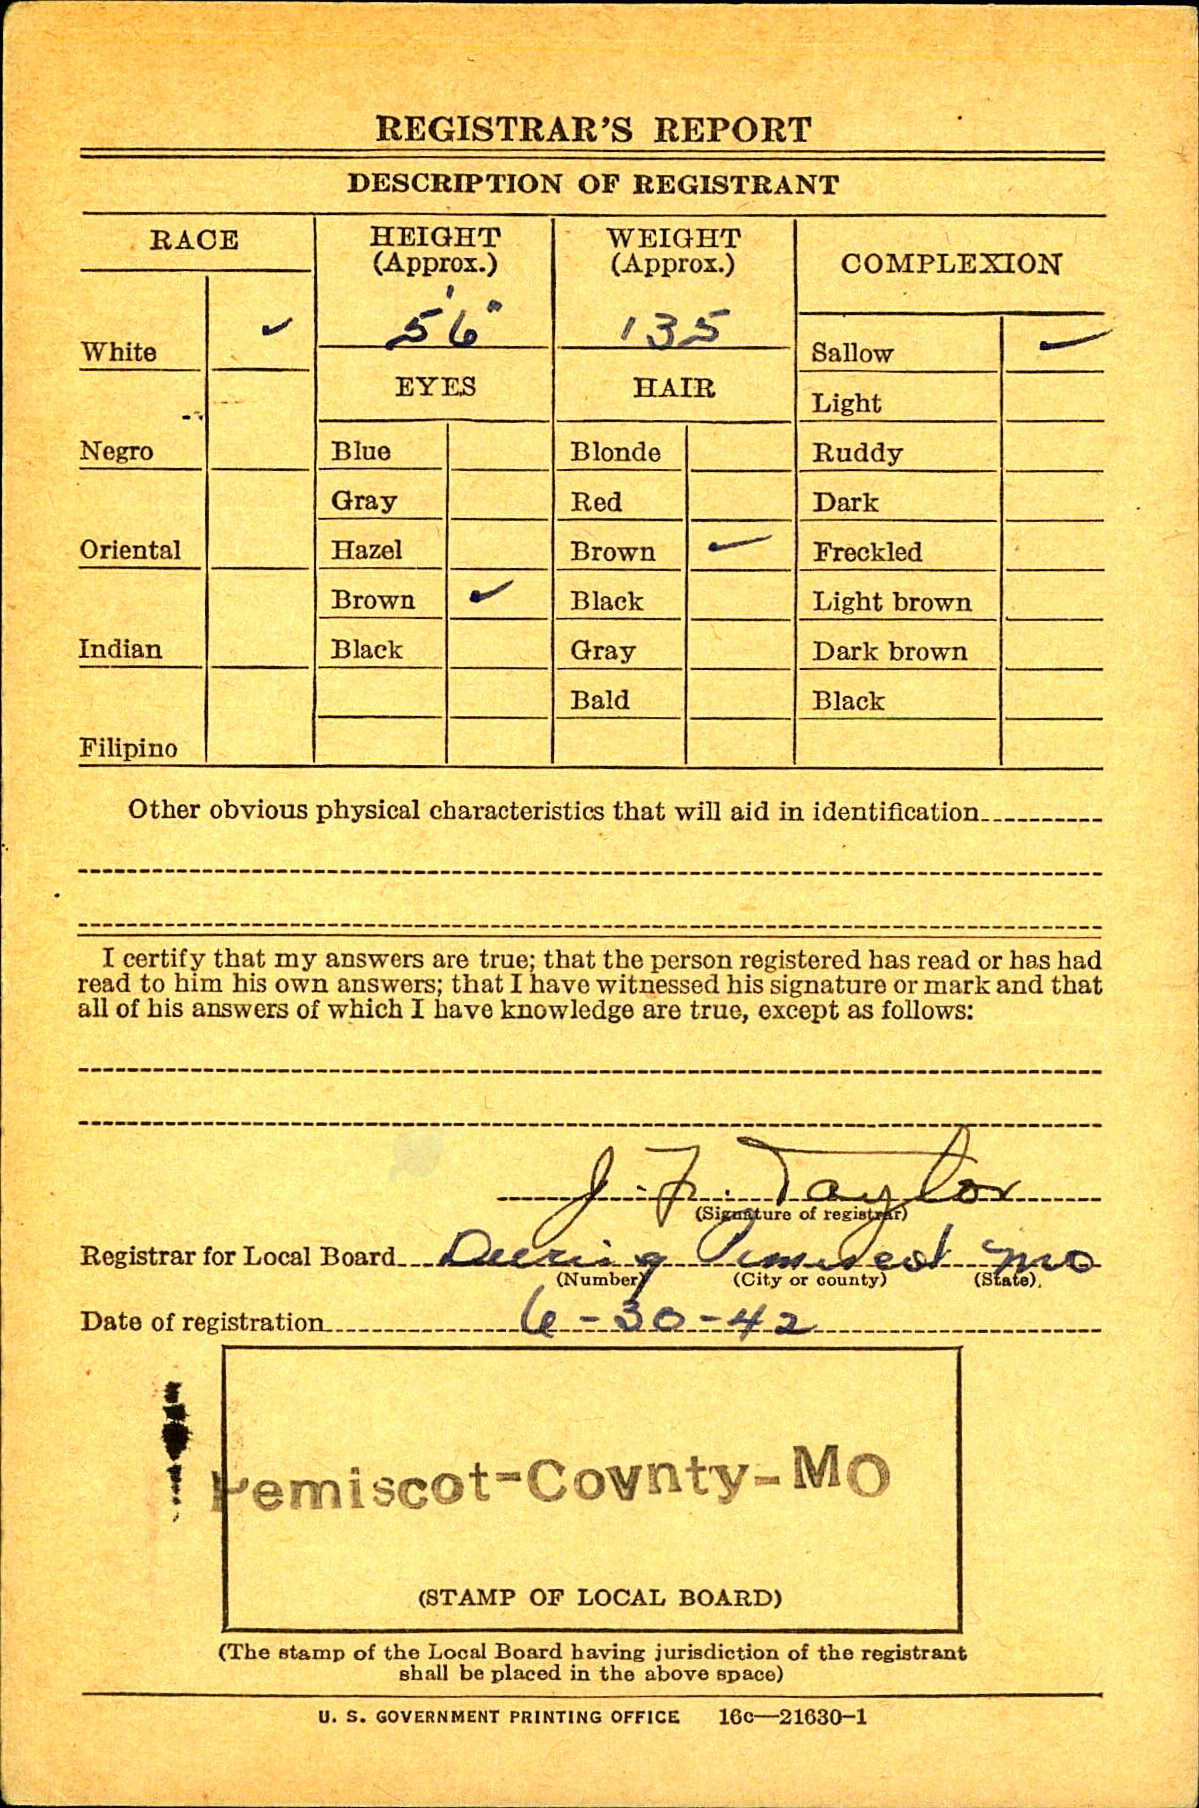 REGISTRAR'S REPORT
DESCRIPTION OF REGISTRANT
RACE
HEIGHT
(Approx.)
WEIGHT
(Approx.)
COMPLEXION
White ✓
5' 6"
135
Sallow ✓
EYES
HAIR
Light
Negro
Blue
Blonde
Ruddy
Gray
Red
Dark
Oriental
Hazel
Brown ✓
Freckled
Brown ✓
Black
Light brown
Indian
Black
Gray
Dark brown
Bald
Black
Filipino
Other obvious physical characteristics that will aid in identification
I certify that my answers are true; that the person registered has read or has had
read to him his own answers; that I have witnessed his signature or mark and that
all of his answers of which I have knowledge are true, except as follows:
J. F. Taylor
(Signature of registrar)
Registrar for Local Board Deering Pemiscot Mo
(Number) (City or county) (State)
Date of registration 6-30-42
Pemiscot-County-MO
(STAMP OF LOCAL BOARD)
(The stamp of the Local Board having jurisdiction of the registrant
shall be placed in the above space)
U. S. GOVERNMENT PRINTING OFFICE 16c—21630-1